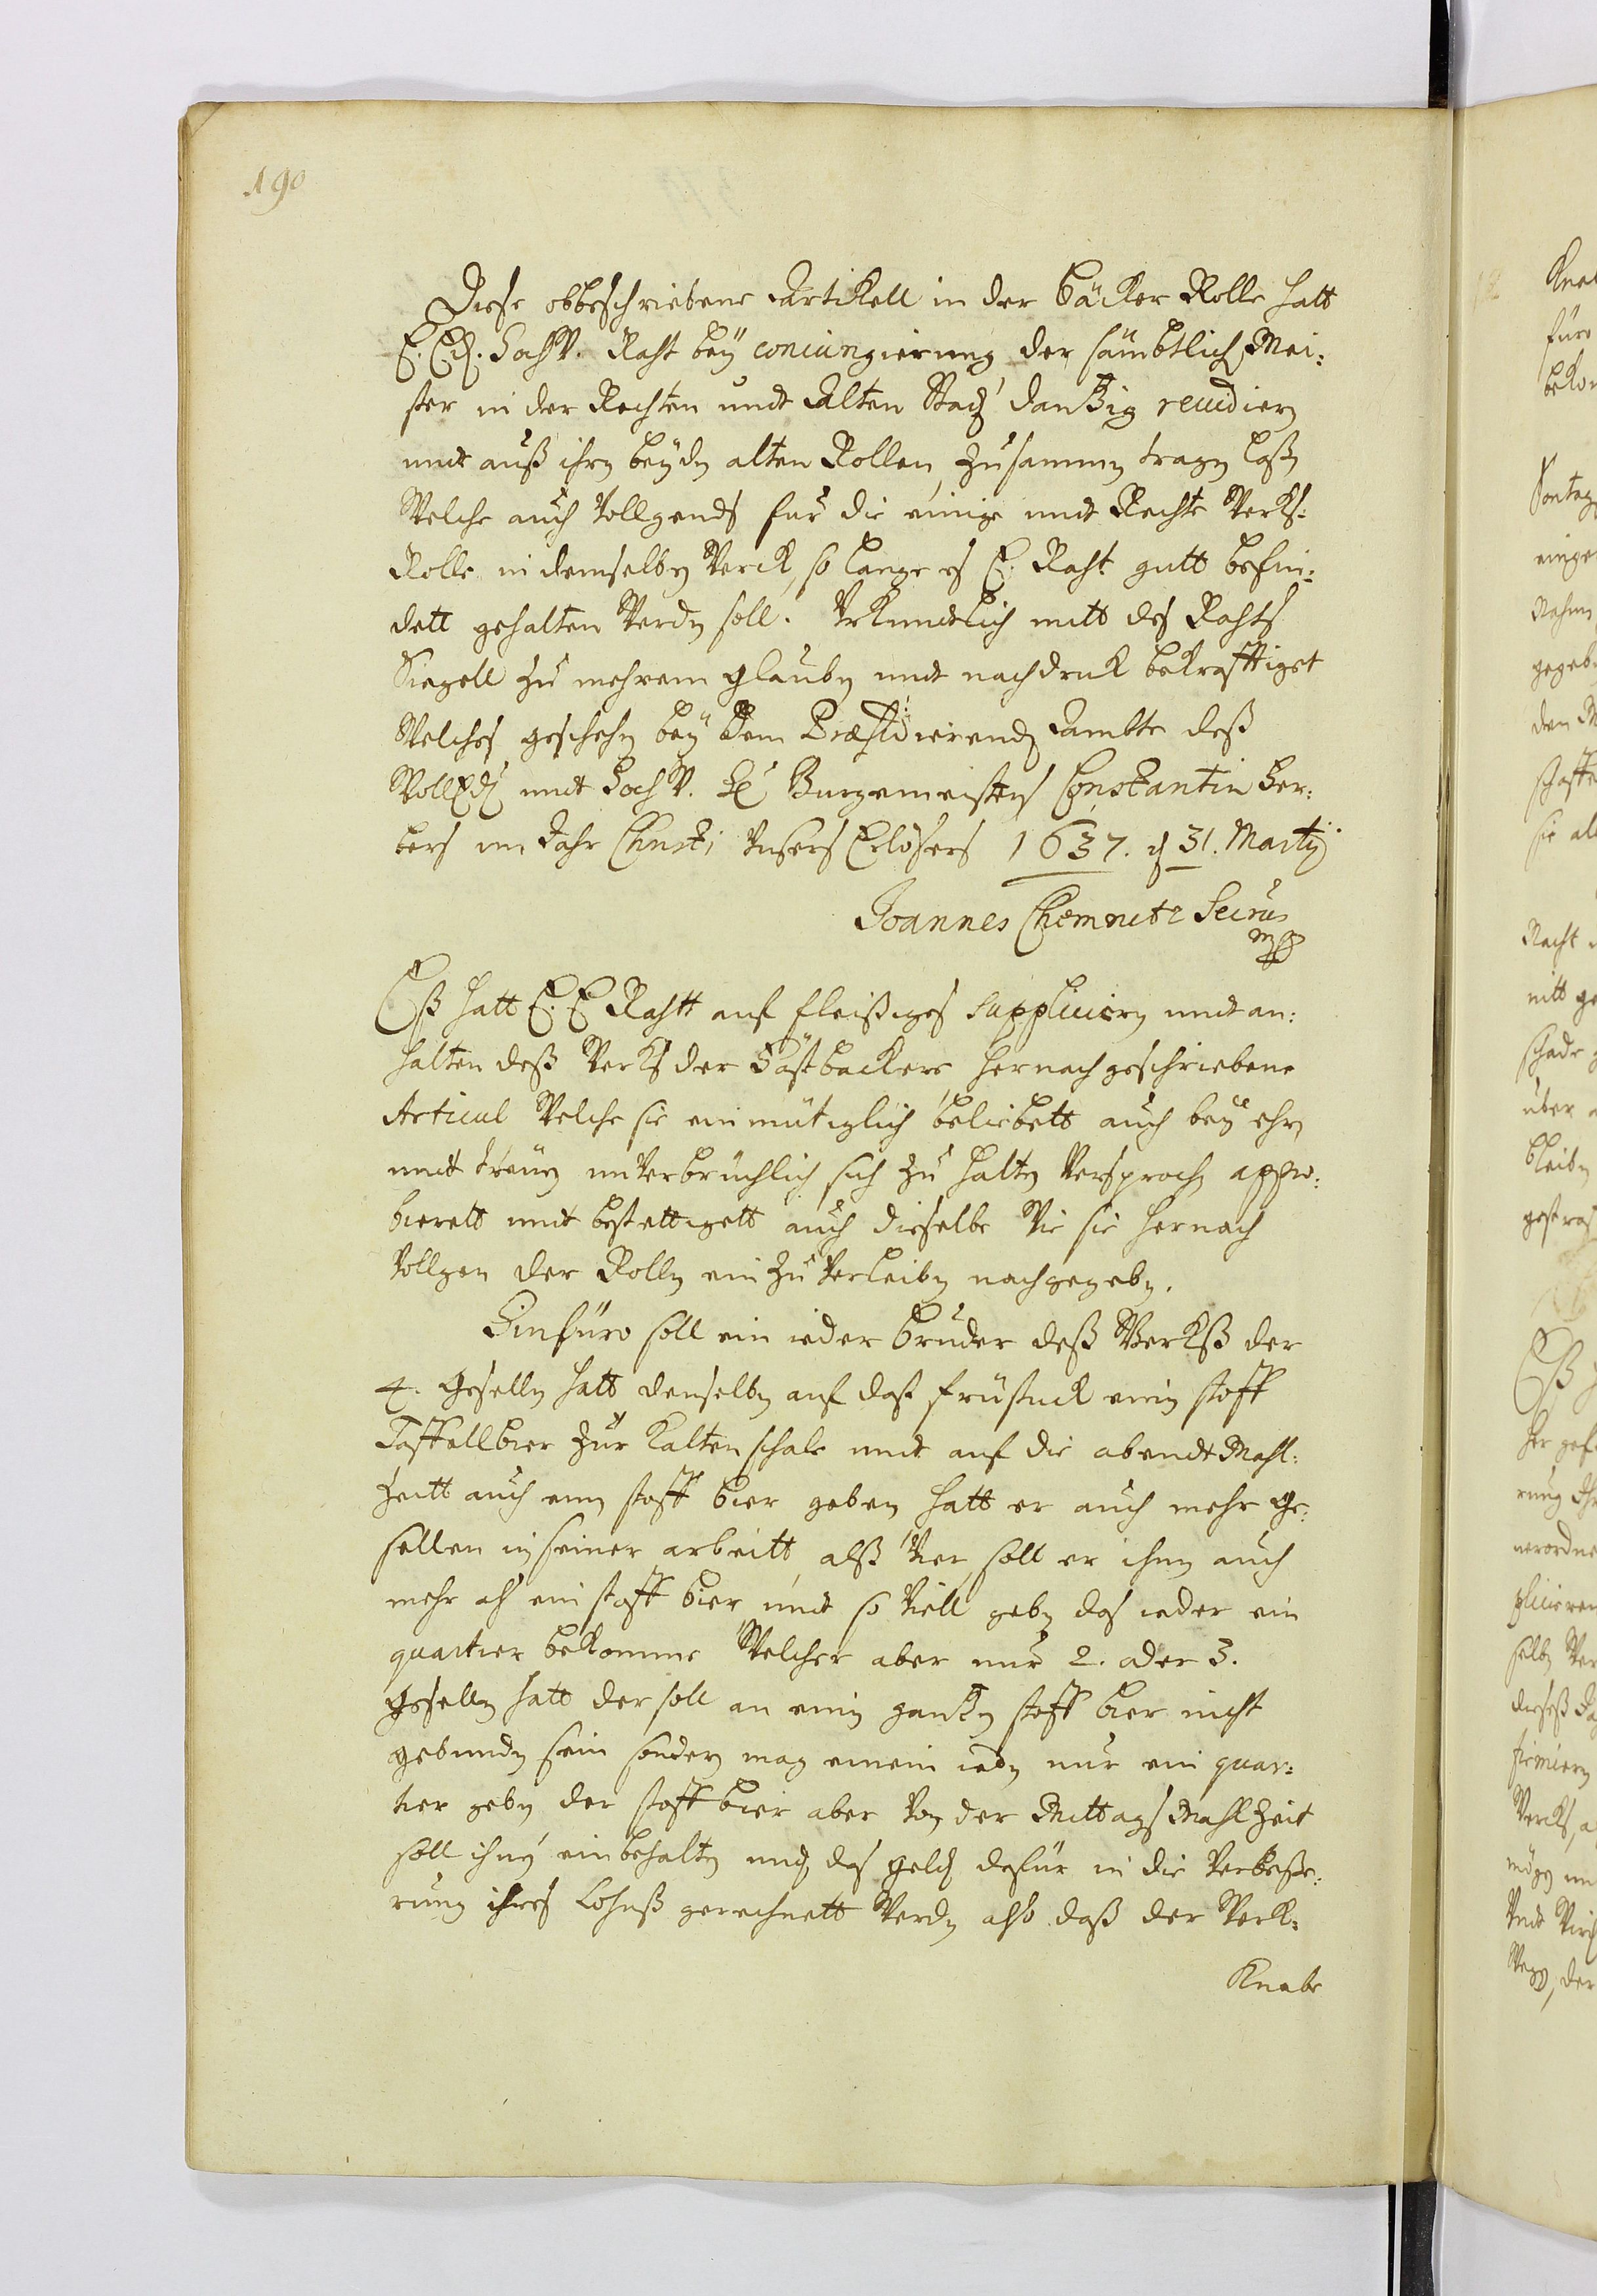 190
Diese obbeschriebene Artikell in der Bäcker Rolle hatt
E. Ed. HochW. Raht bey conjungierung der sämbtlich Mei-
ster in der Rechten undt Alten Stadt Dantzig revidiern
undt auß ihrn beyden alten Rollen zusammen tragen laßen
Welche auch vollgends fur die einige undt Rechte Werks-
Rolle in demselben Werck, so lange es E. Raht gutt befin-
dett gehalten Werden soll. Vrkundtlich mitt des Rahts
Siegell zu mehrem glauben undt nachdruck bekrafftiget
Welches geschehen bey dem Præsidierenden Ambte deß
WollEdl undt HochW. H. Burgemeisters Constantin Fer-
bers im Jahr Christi Unsers Erlösers 1637. d 31. Martij
Joannes Chemnitz Secrus
mp
Eß hatt E. E Rahtt auf fleißiges Supplicirn undt an-
halten deß Werks der Fastbacker hernach geschriebene
Articul Welche sie einmütiglich beliebett auch bey ehrn
undt treuen unVerbrüchlich sich zu halten Versprochen appro-
bierett undt bestettigett auch dieselbe Wie sie hernach
Vollgen der Rollen ein zu Verleiben nachgegeben.
Hinfüro soll ein ieder Bruder deß Werkß der
4. Gesellen hatt denselben auf daß frustuck einen stoff
Taffellbier zur Kalten schale undt auf die abendt Mahl-
zeitt auch einen stoff bier geben hatt er auch mehr Ge-
sellen in seiner arbeitt alß Vier, soll er ihnen auch
mehr als ein stoff bier, undt so Viell geben das ieder ein
quartier bekomme Welcher aber nur 2. oder 3.
Gesellen hatt der soll an einen gantzen stoff bier nicht
gebunden sein sondern mag einem ieden nur ein quar-
tier geben der stoff bier aber Von der Mittags Mahlzeit
soll ihnen einbehalten undt das geldt dafür in die Verbeße-
rung ihres Lohnß gerechnett Werden also daß der Werk-
Knabe